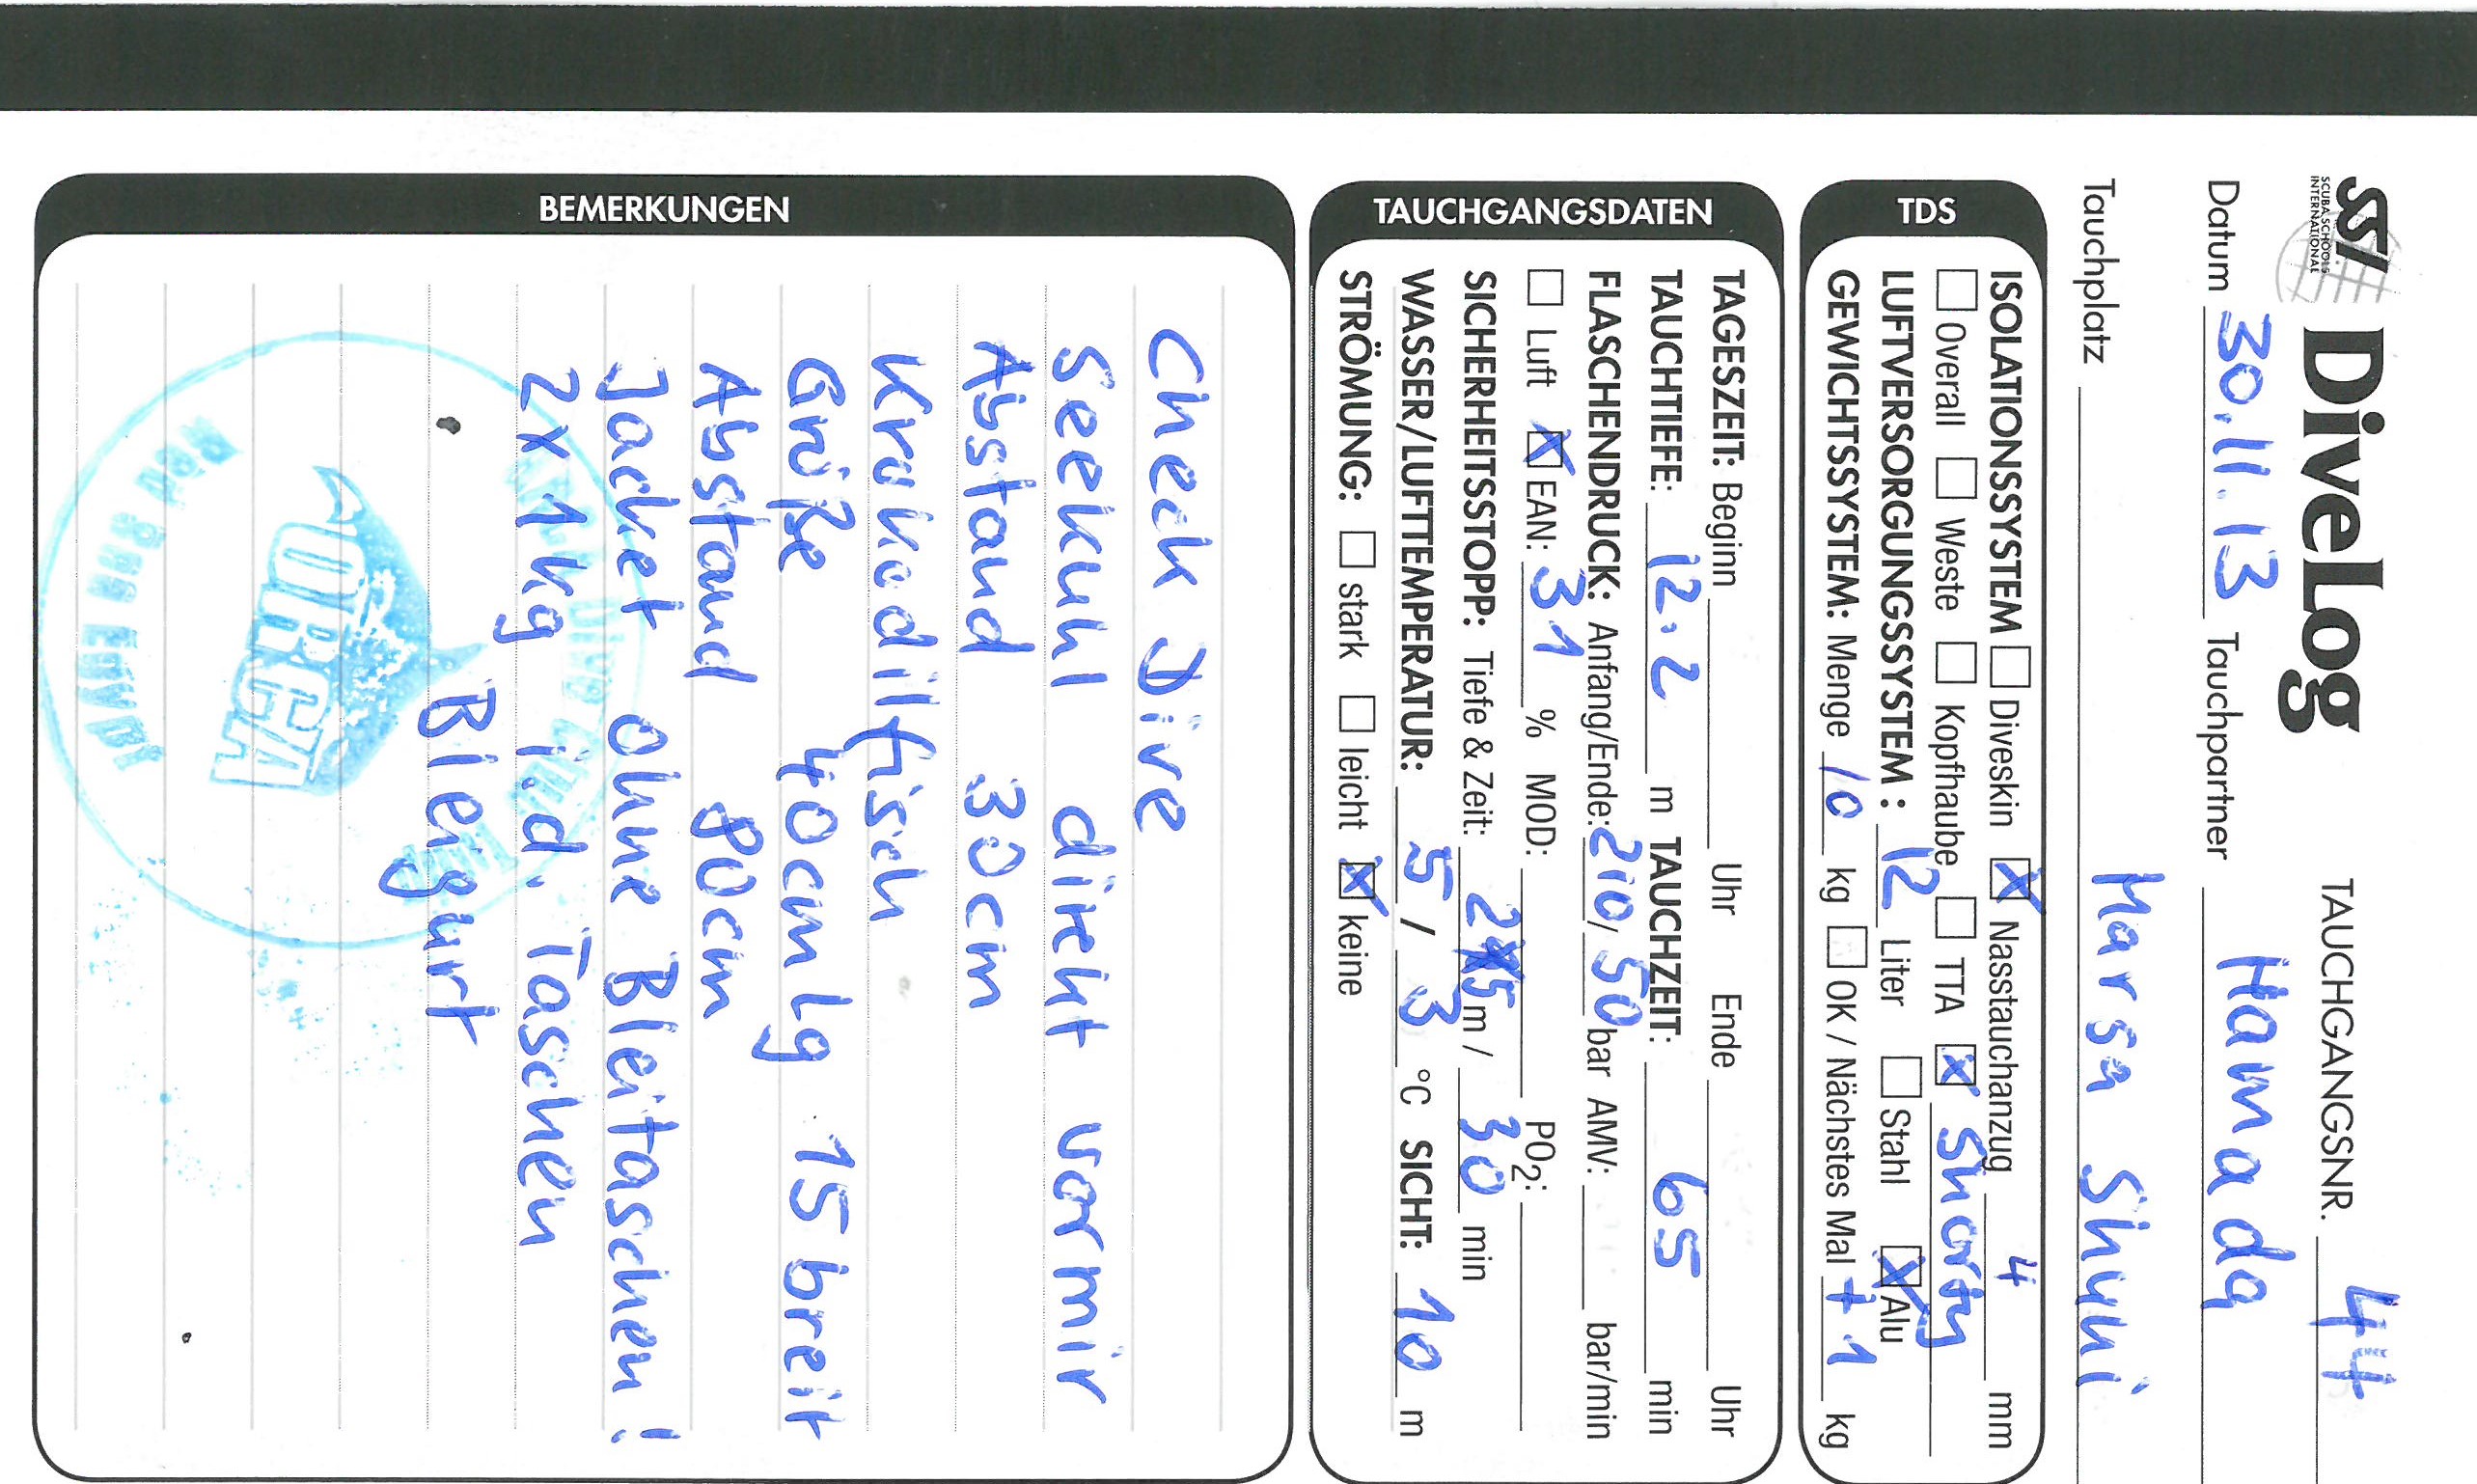 SSI
SCUBA SCHOOLS
INTERNATIONAL
DiveLog
TAUCHGANGSNR. 44
Datum 30.11.13 Tauchpartner Hamada
Tauchplatz Marsa Shuni
TDS
ISOLATIONSSYSTEM Diveskin X Nasstauchanzug 4 mm
Overall Weste Kopfhaube TTA X Shorty
LUFTVERSORGUNGSSYSTEM: 12 Liter Stahl X Alu
GEWICHTSSYSTEM: Menge 10 kg OK / Nächstes Mal +1 kg
TAUCHGANGSDATEN
TAGESZEIT: Beginn Uhr Ende Uhr
TAUCHTIEFE: 12.2 m TAUCHZEIT: 65 min
FLASCHENDRUCK: Anfang/Ende: 210/50 bar AMV: bar/min
Luft X EAN: 31 % MOD: PO2:
SICHERHEITSSTOPP: Tiefe & Zeit: 5 m / 30 min
WASSER/LUFTTEMPERATUR: 5 / 3 °C SICHT: 10 m
STRÖMUNG: stark leicht X keine
BEMERKUNGEN
Check Dive
Seekuh direkt vor mir
Abstand 30cm
Krokodilfisch
Größe 40cm lg 15 breit
Abstand 80cm
Jacket ohne Bleitaschen!
2x1kg i.d. Taschen
Bleigurt
ORCA